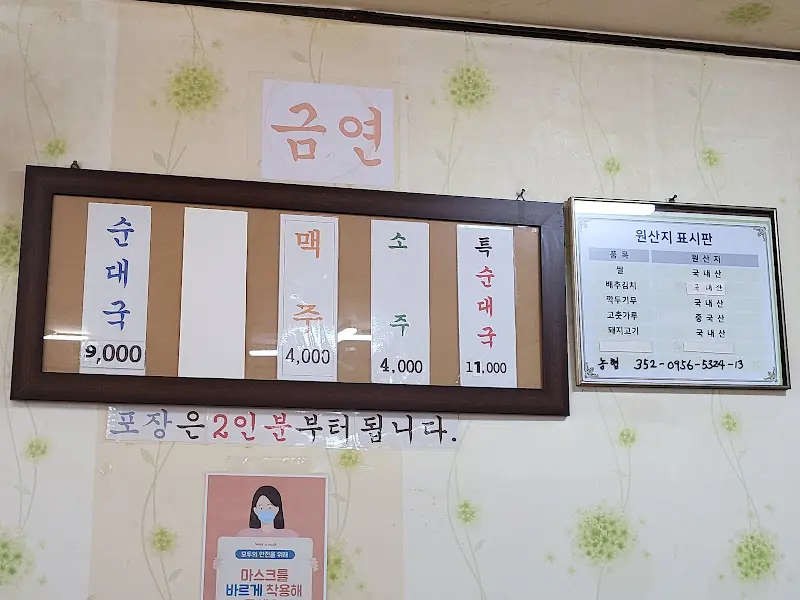 금연
순대국
9,000
맥주
4,000
소주
4,000
특순대국
11,000
원산지 표시판
품목 원산지
쌀 국내산
배추김치 국내산
깍두기무 국내산
고춧가루 중국산
돼지고기 국내산
농협 352-0956-5324-13
포장은 2인분부터 됩니다.
모두의 안전을 위해
마스크를
바르게 착용해